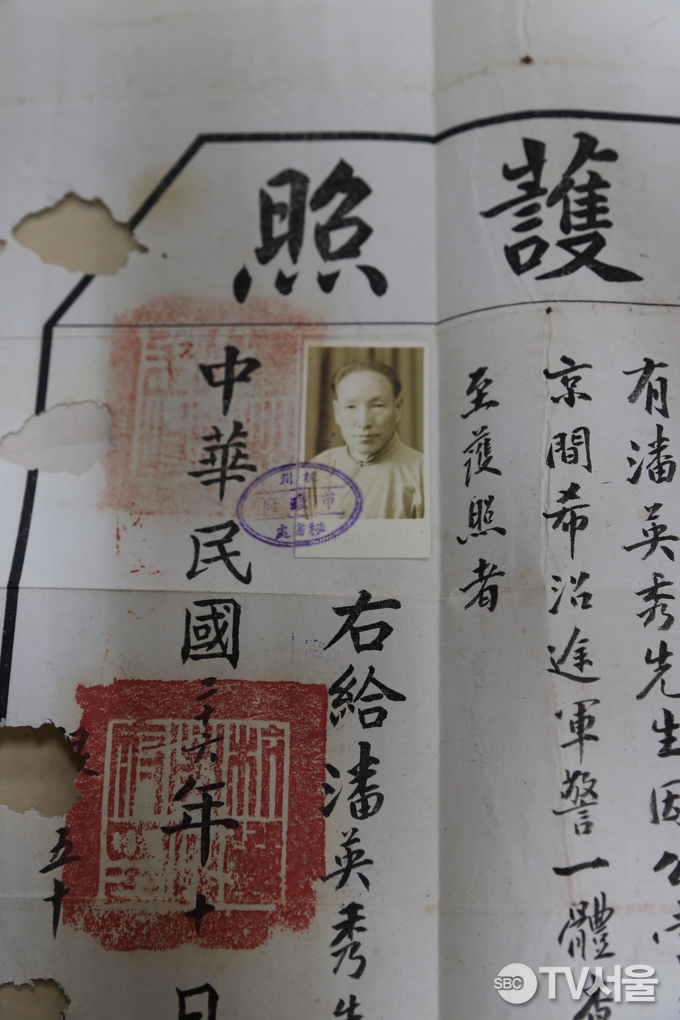 護照
有潘英秀先生因公
京間希沿途軍警一體
至護照者
右給潘英秀先
中華民國三十六年十
日
五十
杭州
市政府
秘書處
SBC TV서울